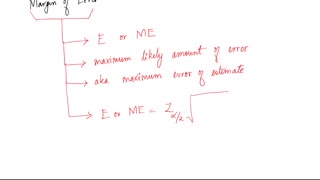 Margin of Error
E or ME
maximum likely amount of error
aka maximum error of estimate
E or ME = Z α/2 √